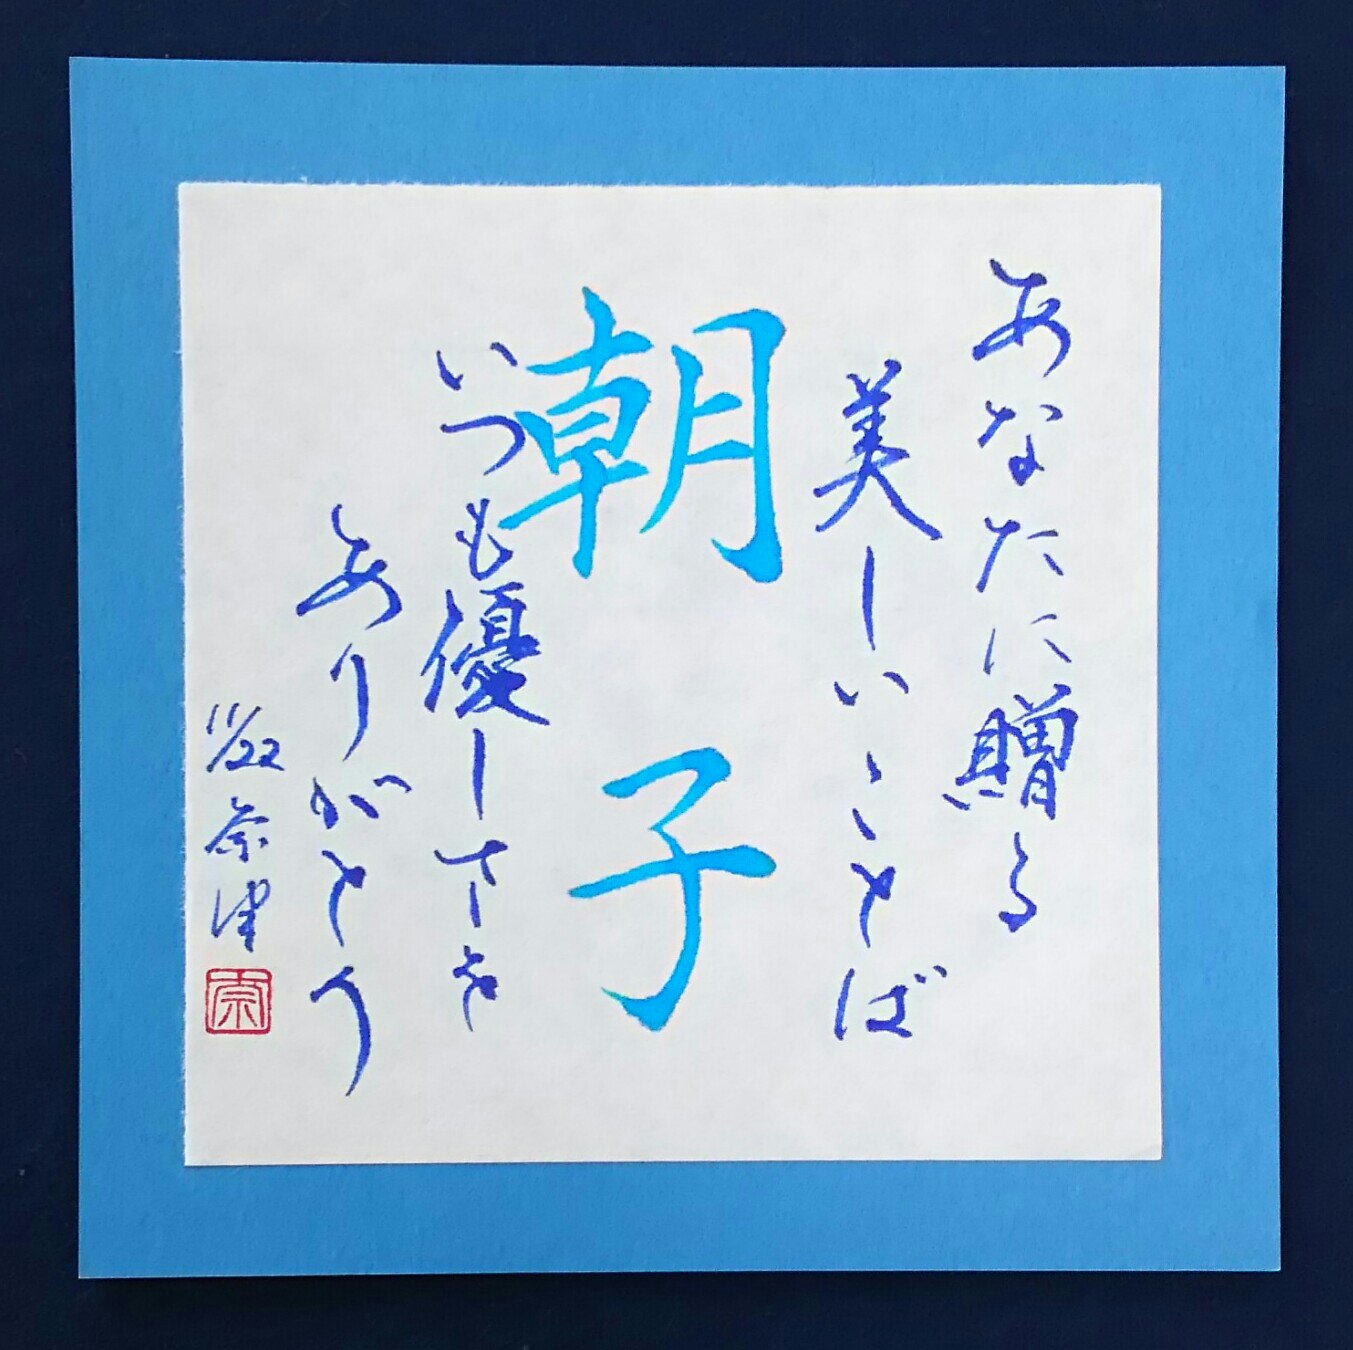 あなたに贈る
美しいことば
朝子
いつも優しさを
ありがとう
11/22 奈津
奈